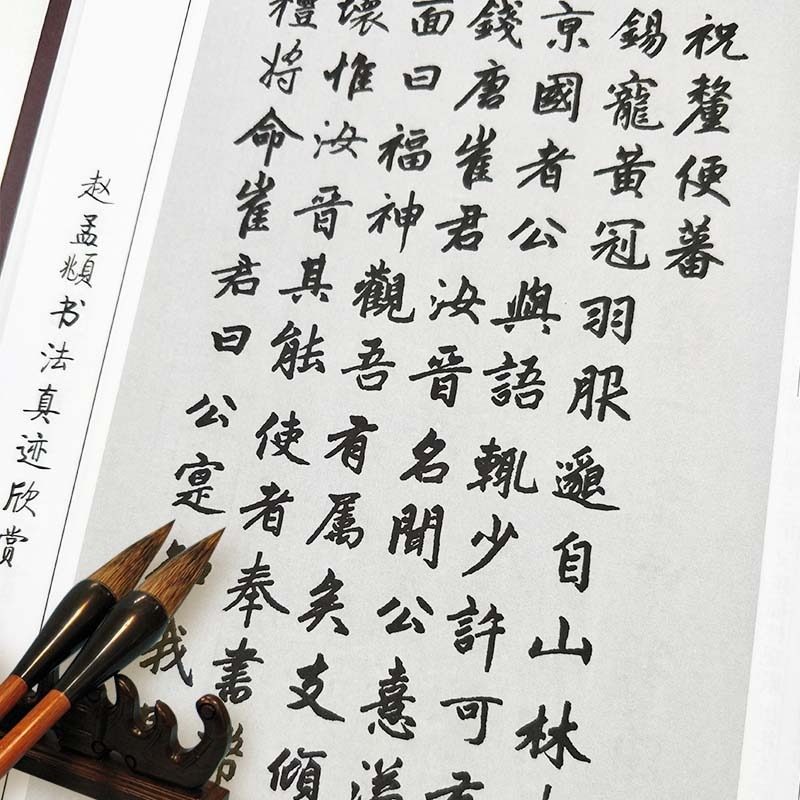 祝釐便蕃
錫寵黃冠羽服自山林
京國者公與語輒少許可
錢唐崔君汝晉名聞公憙
面曰福神觀吾有屬矣支傾
壞惟汝晉其能使者奉書幣
禮將命崔君曰公寔知我
赵孟頫书法真迹欣赏